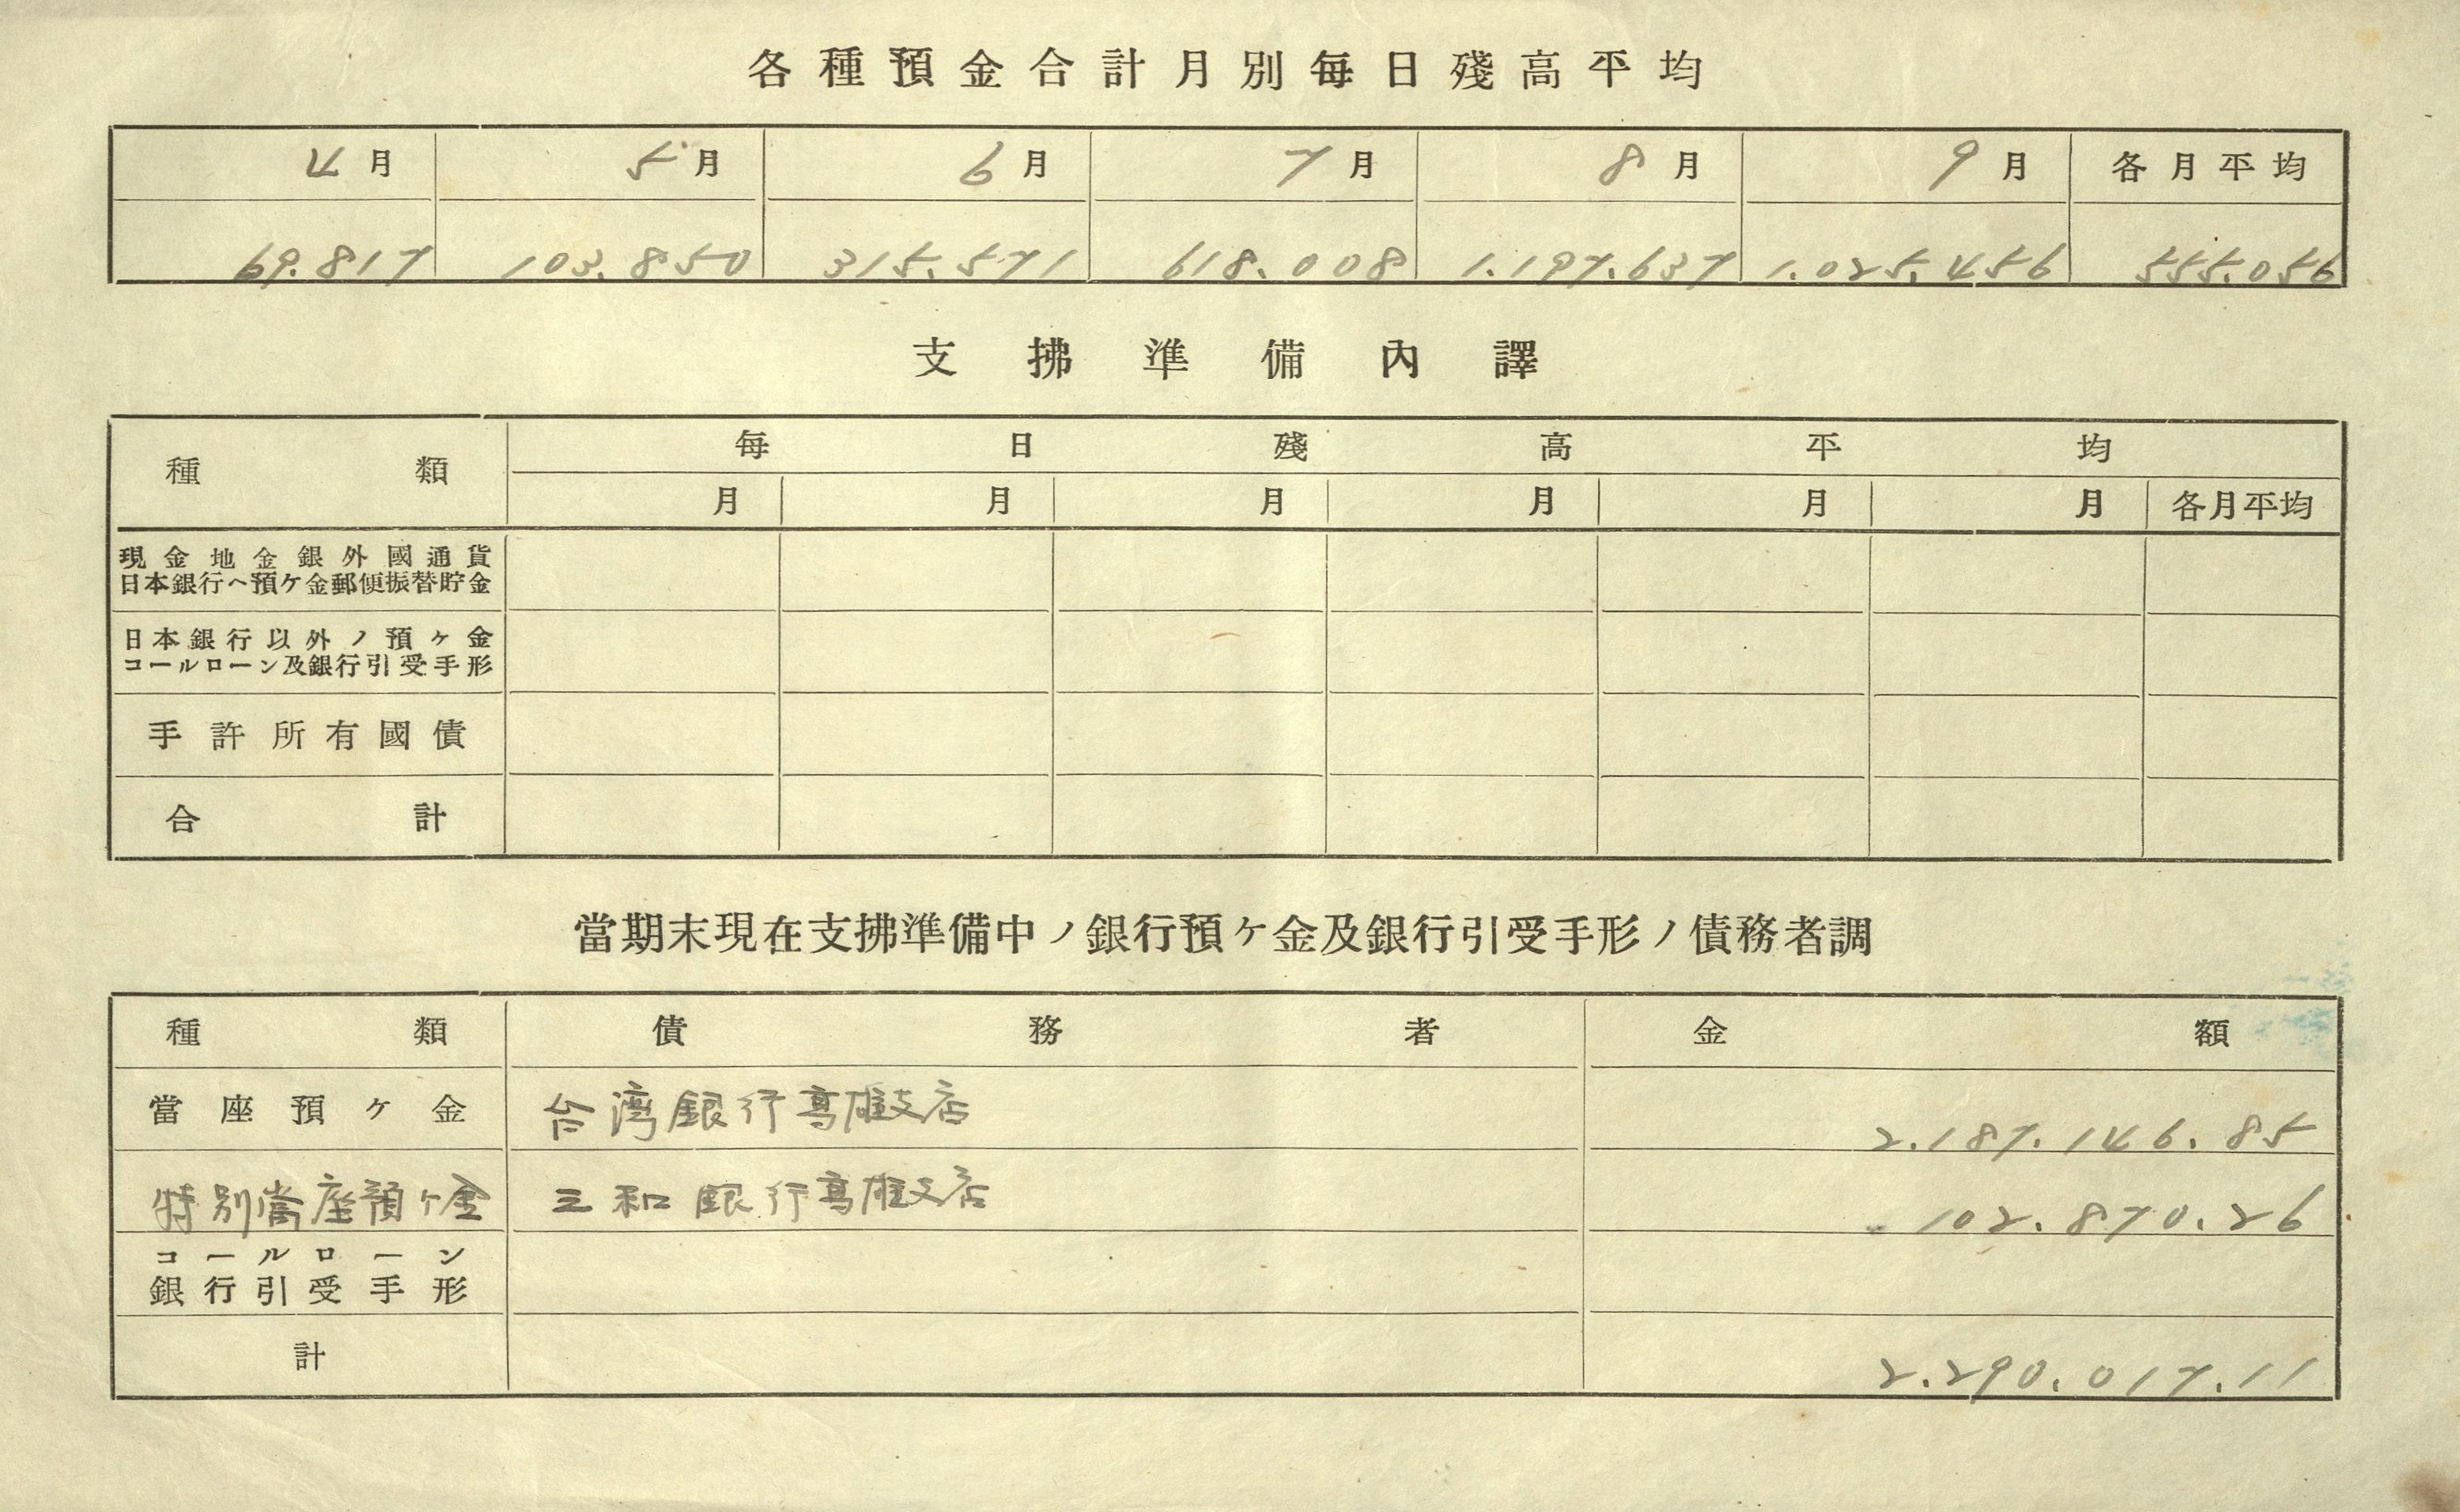 各種預金合計月別每日殘高平均
4月 5月 6月 7月 8月 9月 各月平均
69.817 103.850 315.571 618.008 1.197.637 1.025.456 555.056
支拂準備內譯
種類 每日殘高平均
月 月 月 月 月 月 各月平均
現金地金銀外國通貨
日本銀行ヘ預ケ金郵便振替貯金
日本銀行以外ノ預ヶ金
コールローン及銀行引受手形
手許所有國債
合計
當期末現在支拂準備中ノ銀行預ヶ金及銀行引受手形ノ債務者調
種類 債務者 金額
當座預ケ金 台湾銀行高雄支店 2.187.146.85
特別當座預ヶ金 三和銀行高雄支店 102.870.26
コールローン
銀行引受手形
計 2.290.017.11